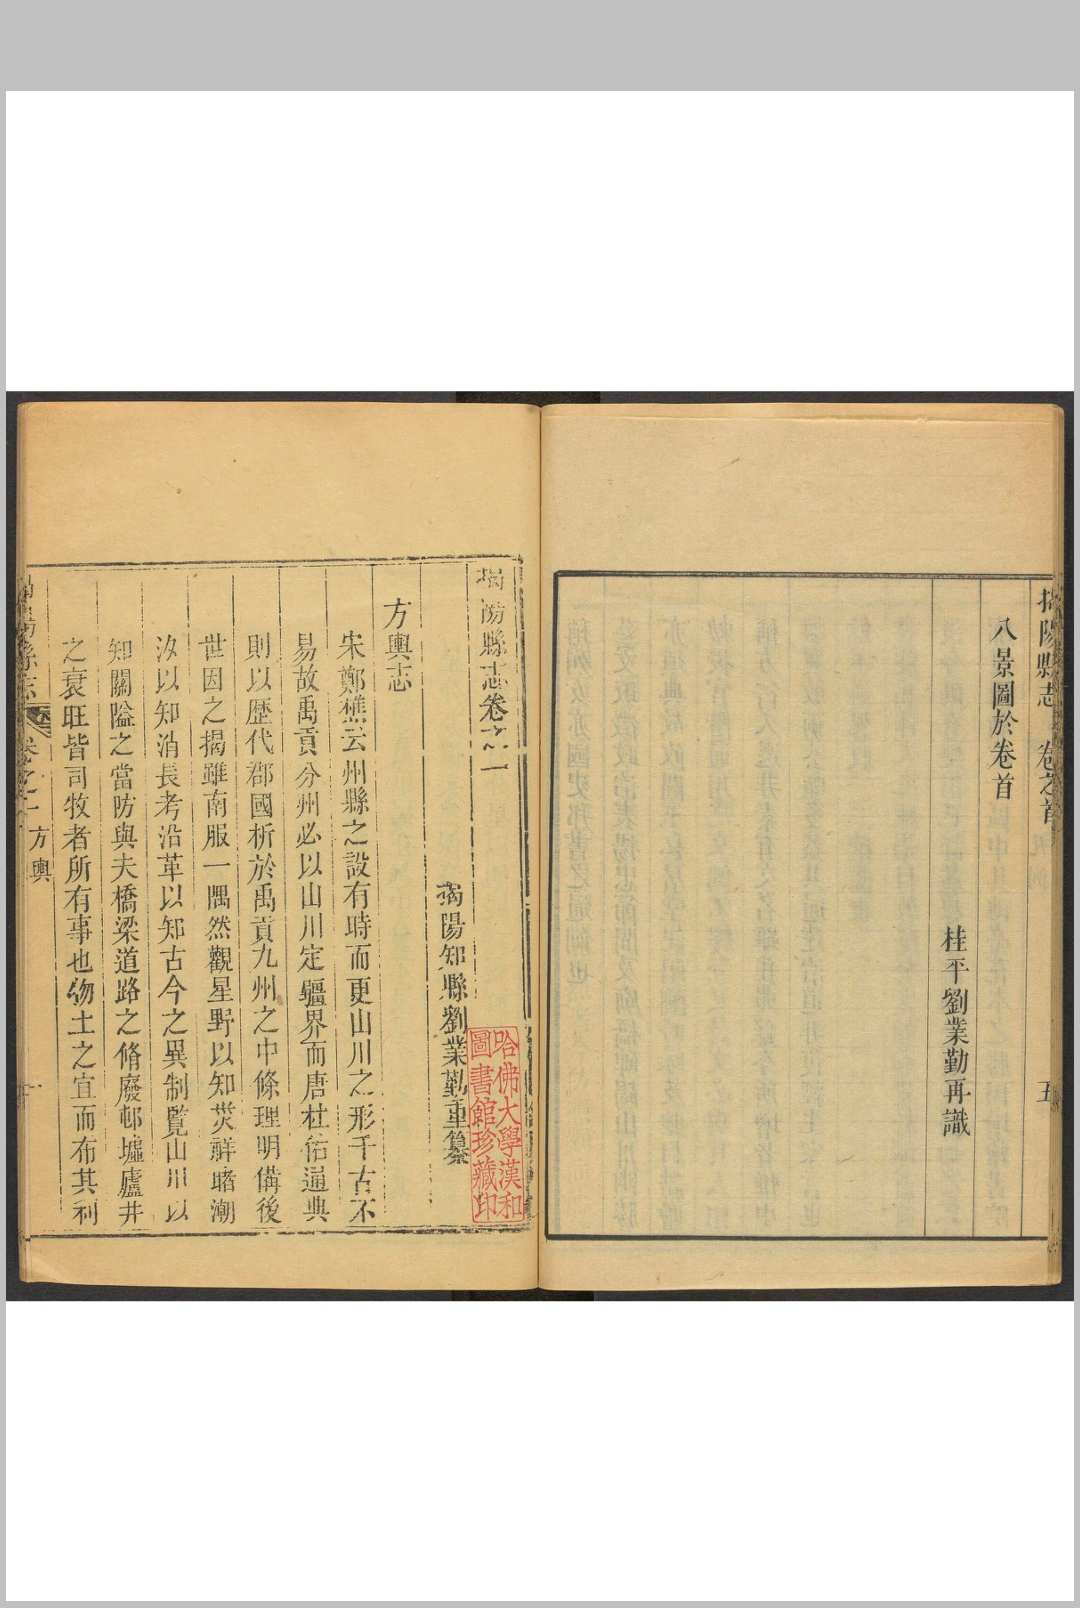 揭陽縣志 卷之首 五
八景圖於卷首
桂平劉業勤再識
揭陽縣志卷之一
揭陽知縣劉業勤重纂
哈佛大學漢和
圖書館珍藏印
方輿志
宋鄭樵云州縣之設有時而更山川之形千古不
易故禹貢分州必以山川定疆界而唐杜佑通典
則以歷代郡國析於禹貢九州之中條理明備後
世因之揭雖南服一隅然觀星野以知災祥睹潮
汐以知消長考沿革以知古今之異制覽山川以
知關隘之當防與夫橋梁道路之脩廢邨墟廬井
之衰旺皆司牧者所有事也物土之宜而布其利
揭陽縣志 卷之一 方輿 一